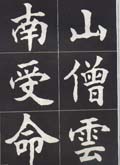 山僧雲
南受命